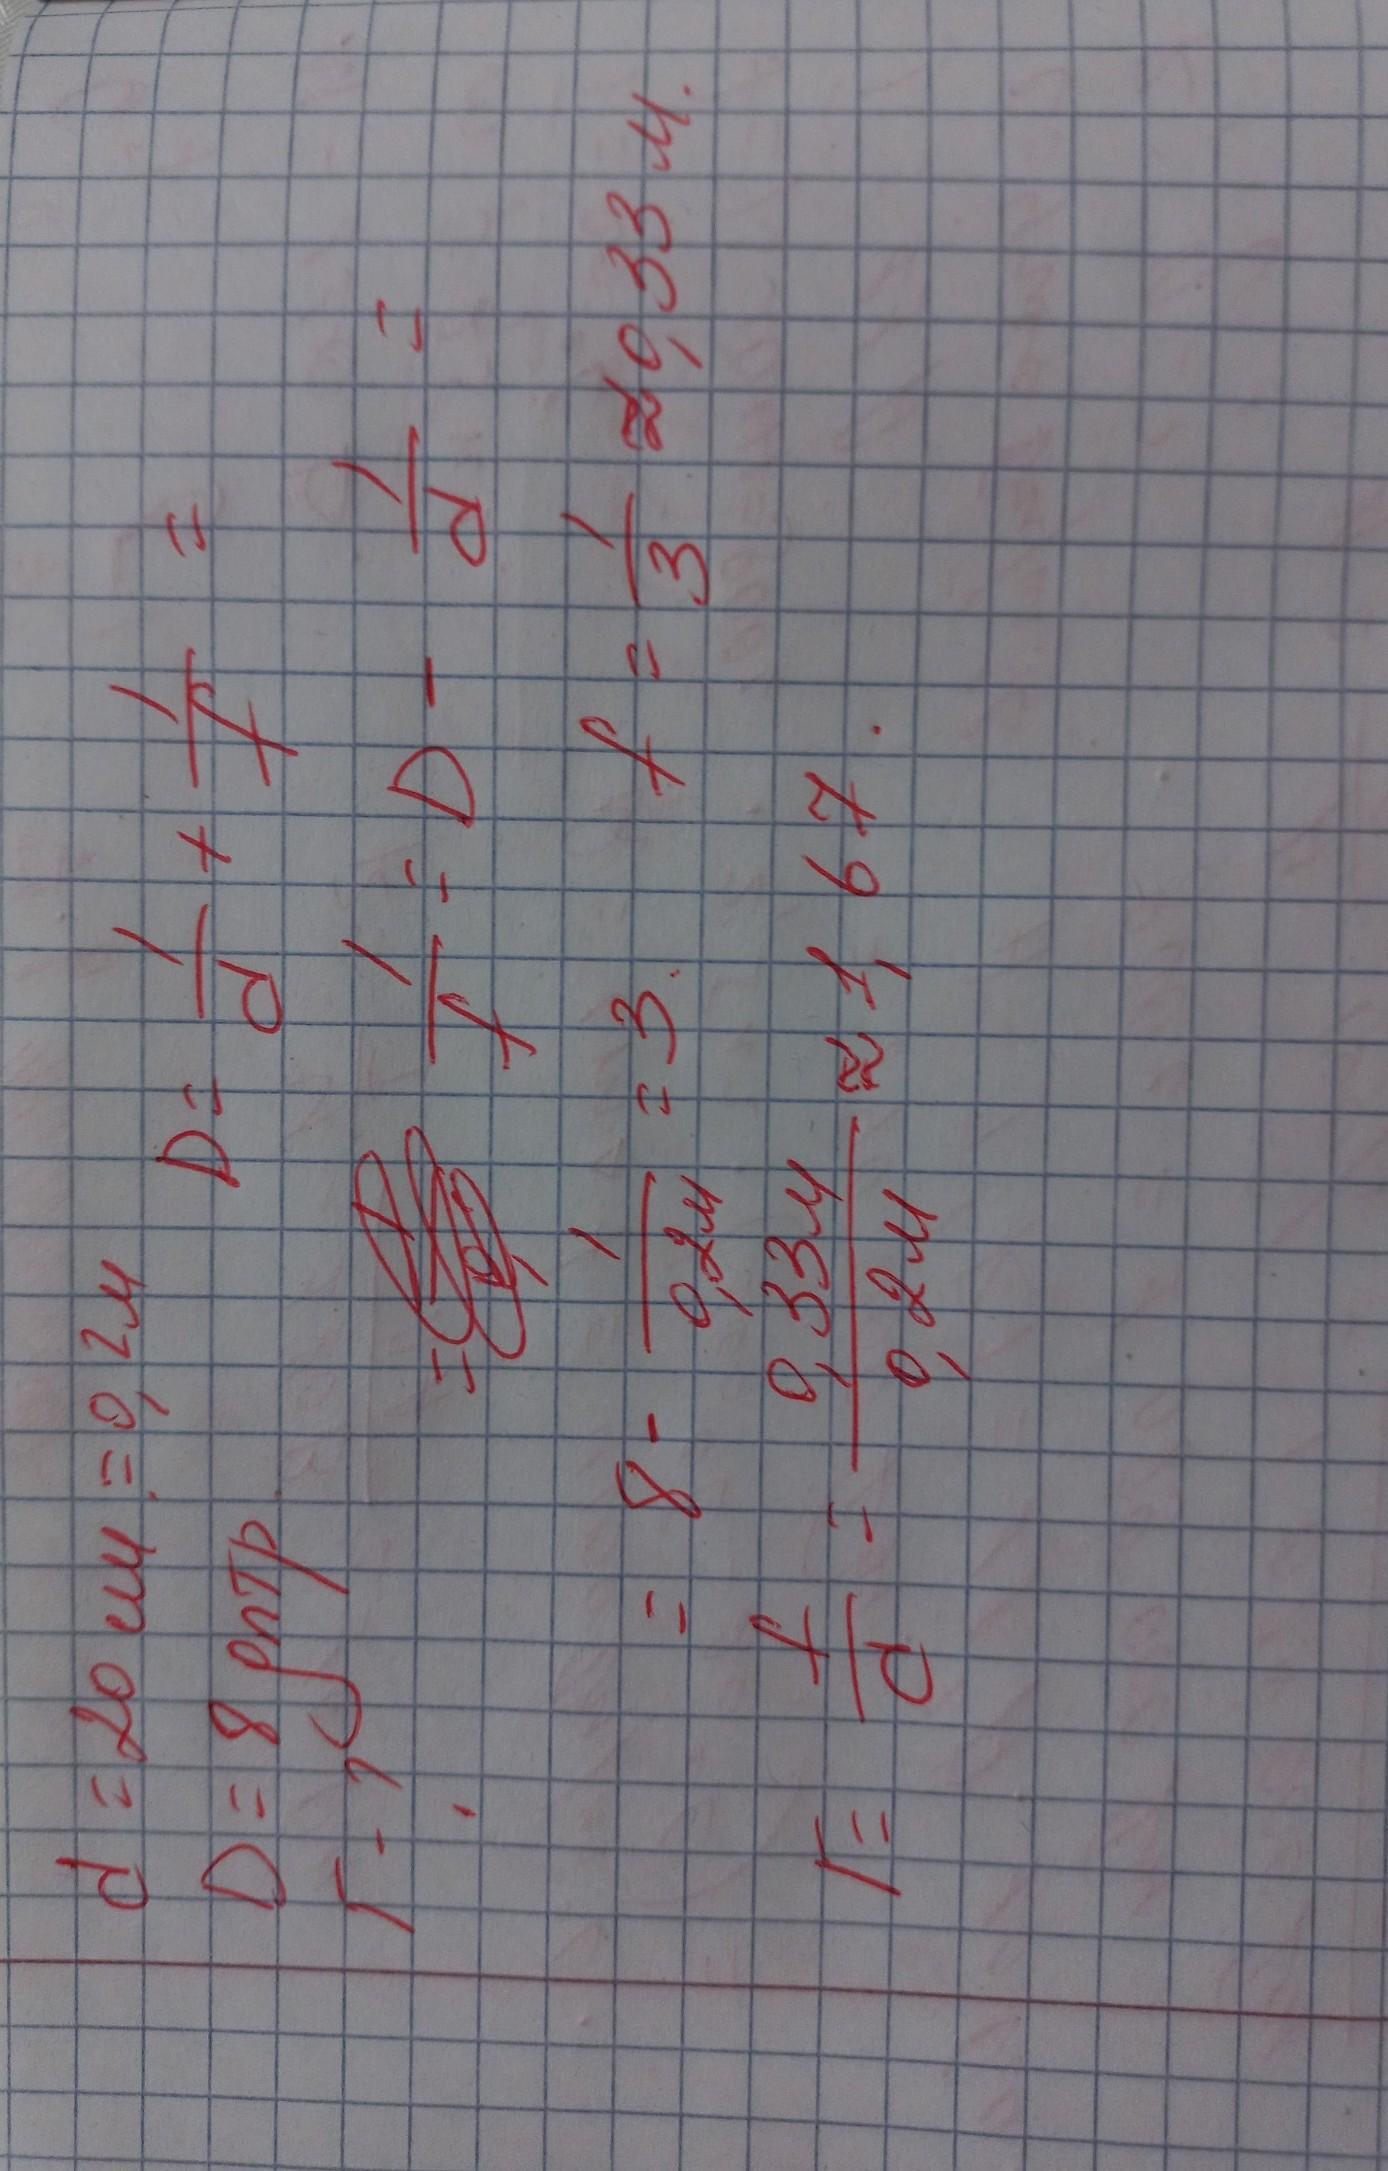 d = 20 см = 0,2 м
D = 8 дптр
Г - ?
D = 1/d + 1/f =
= 1/f = D - 1/d =
= 8 - 1/0,2м = 3. f = 1/3 ≈ 0,33 м.
Г = f/d = 0,33м/0,2м ≈ 1,67.